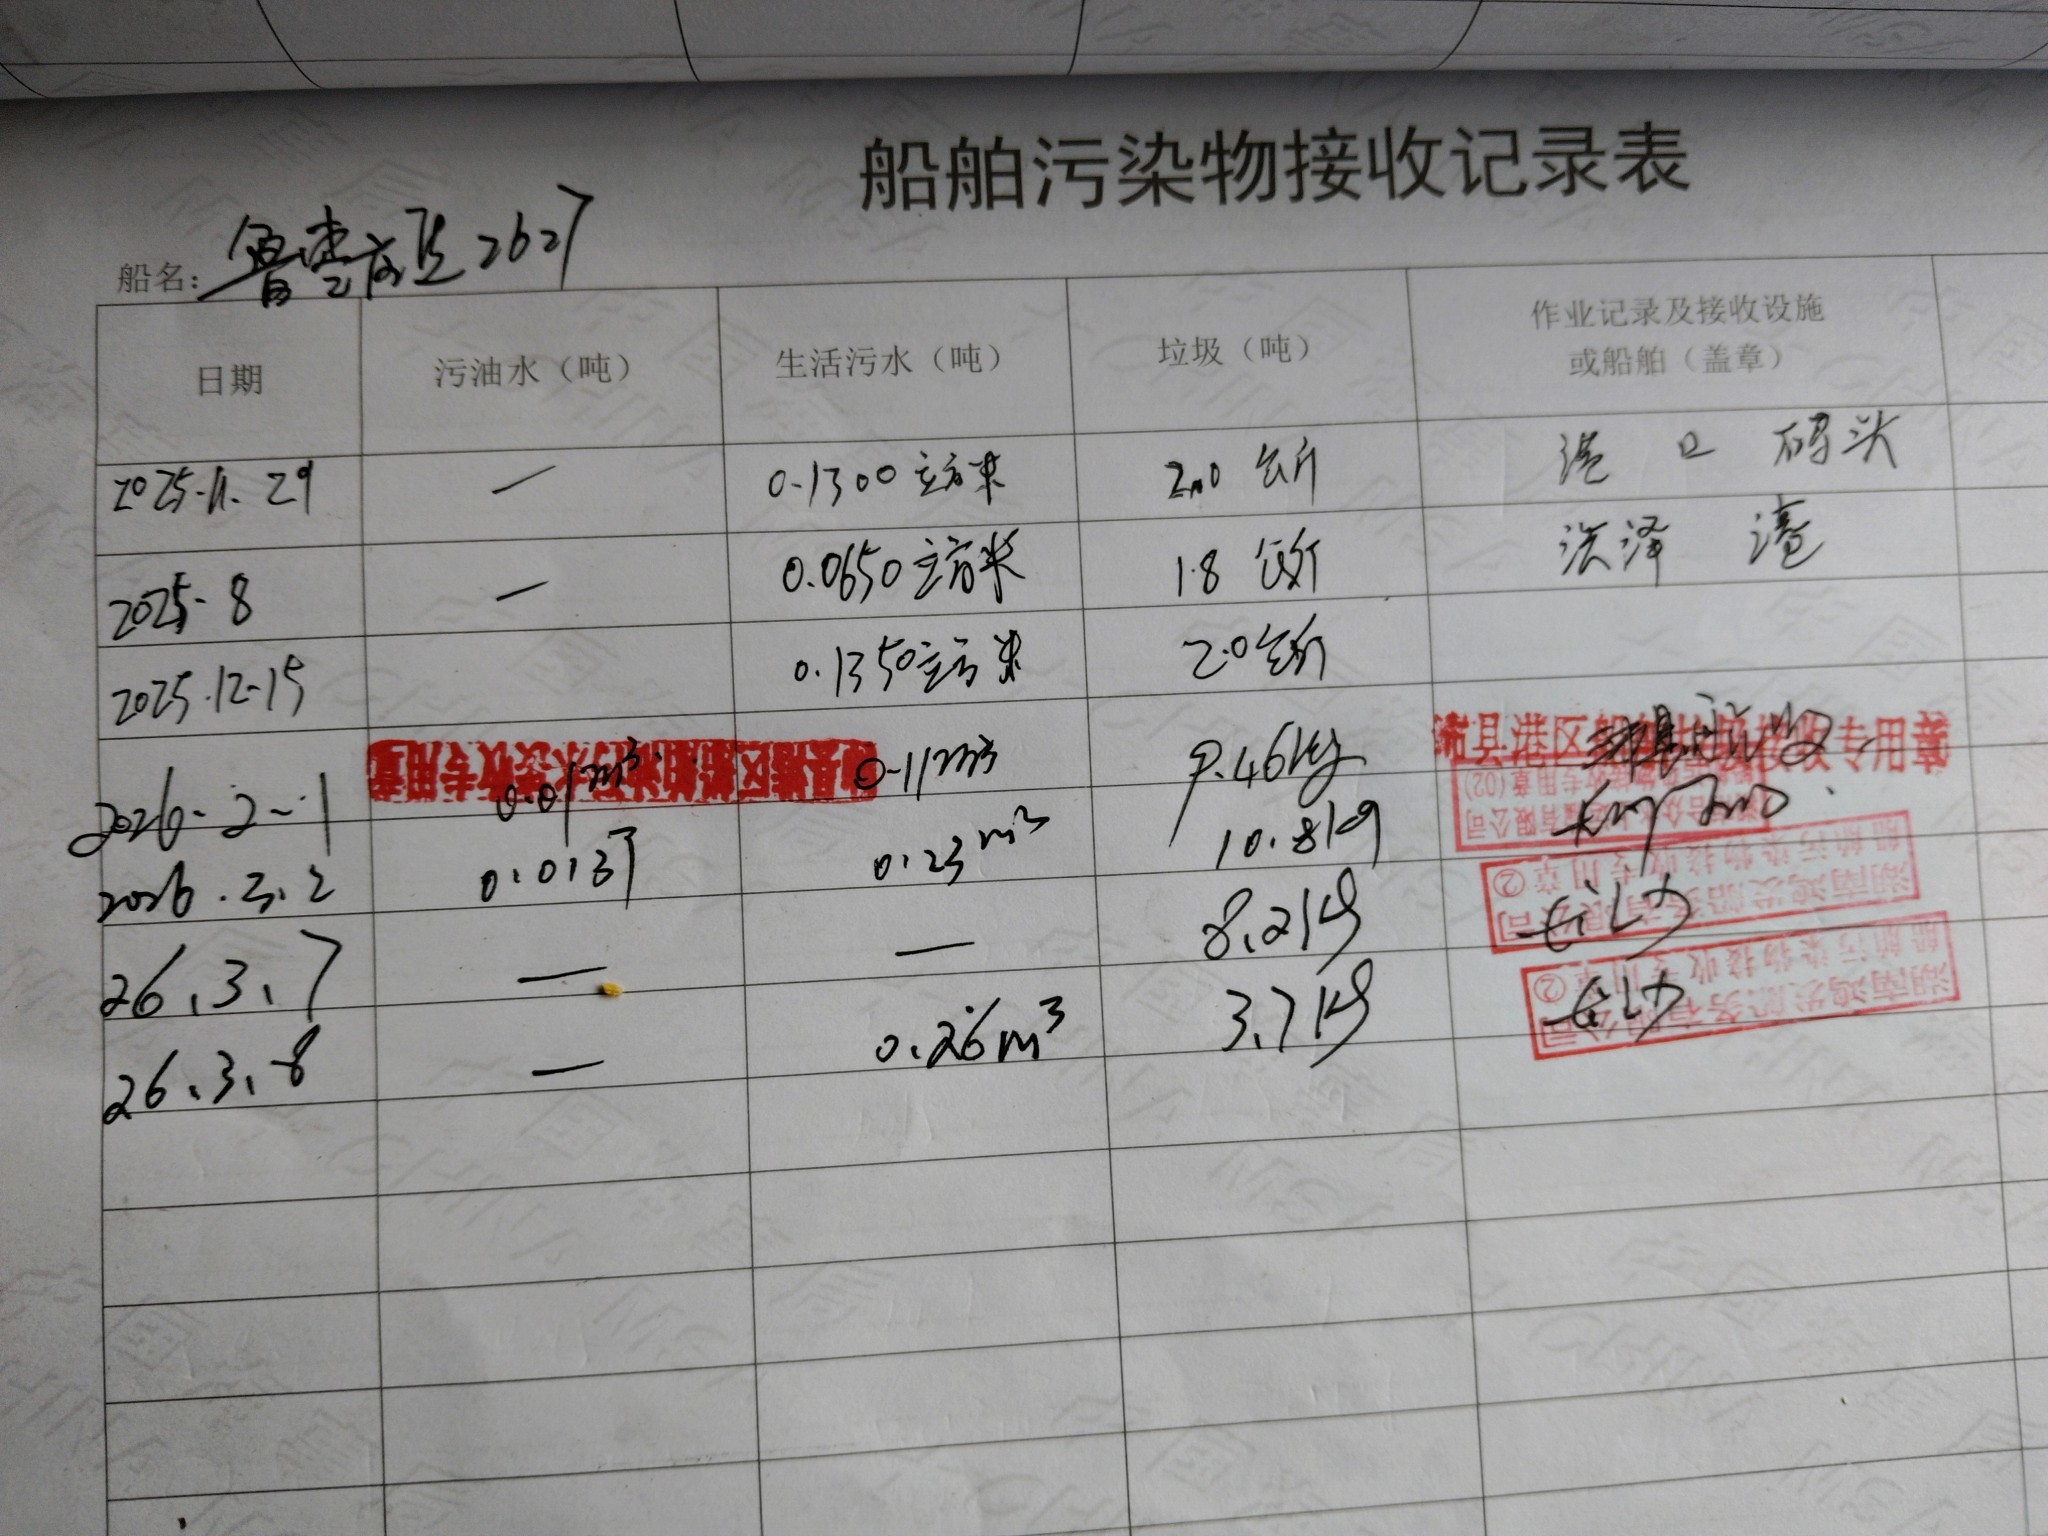 船舶污染物接收记录表
船名: 鲁 2627
日期 污油水（吨） 生活污水（吨） 垃圾（吨） 作业记录及接收设施或船舶（盖章）
2025.11.29 — 0.1300立方米 2.0公斤 港口码头
2025-8 — 0.0650立方米 1.8公斤 洪泽港
2025.12-15 0.1350立方米 2.0公斤
2026-2-1 0.01m³ 0.11m³ 9.46kg 沛县港区 接收专用章
2026.3.2 0.23m³ 10.8kg
26.3.7 — — 8.21kg 湖南鸿发船务有限公司 船舶污染物接收专用章②
26.3.8 — 0.26m³ 3.71kg 湖南鸿发船务有限公司 船舶污染物接收专用章②